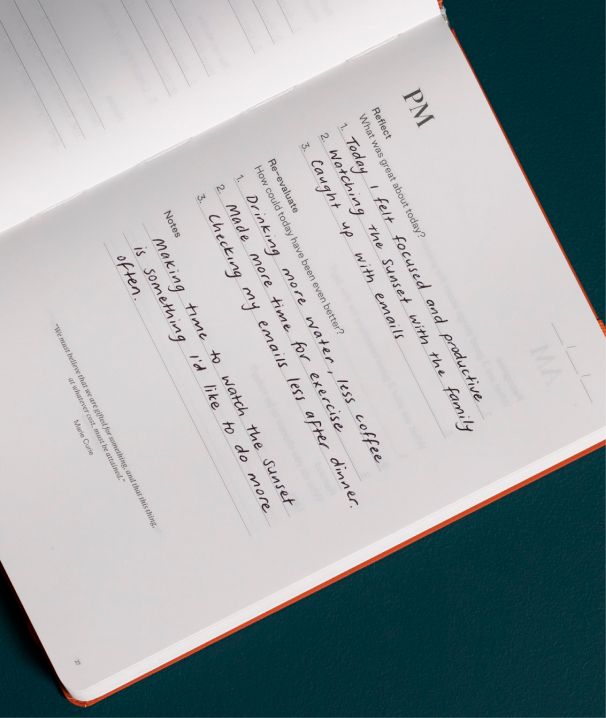 PM
Reflect
What was great about today?
1. Today I felt focused and productive
2. Watching the sunset with the family
3. Caught up with emails
Re-evaluate
How could today have been even better?
1. Drinking more water, less coffee
2. Made more time for exercise
3. Checking my emails less after dinner.
Notes
Making time to watch the sunset
is something I'd like to do more
often.
"We must believe that we are gifted for something, and that this thing,
at whatever cost, must be attained."
Marie Curie